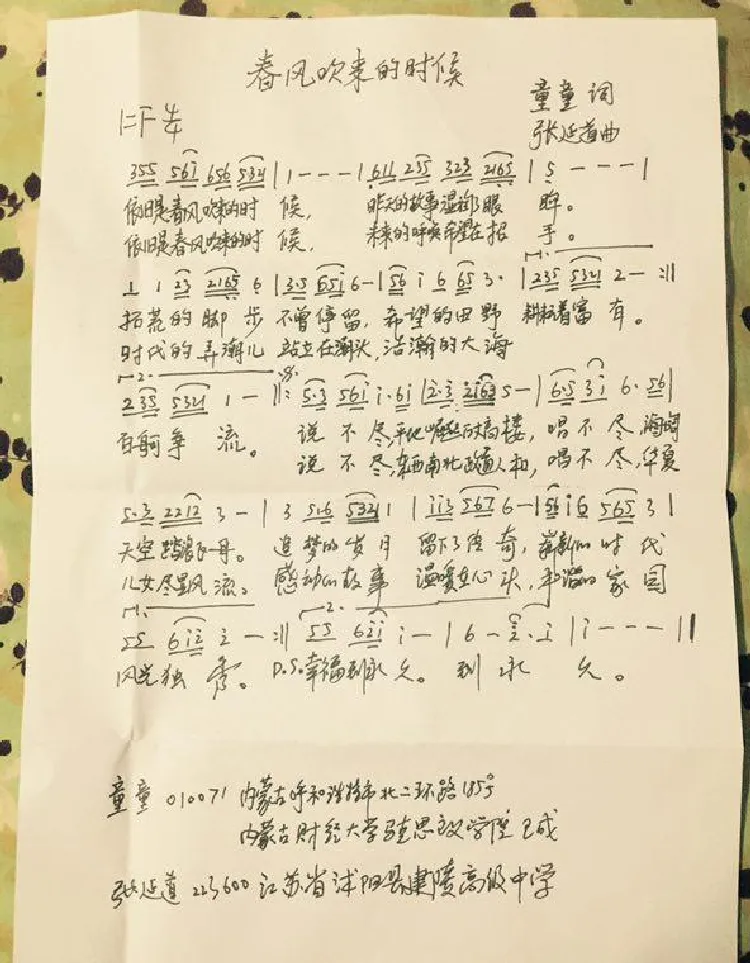 春风吹来的时候
童童 词
1=F 4/4
张延道曲
355 561 656 5321 | 1 - - - | 611 235 323 2165 | 5 - - - |
依旧是春风吹来的时 候, 昨天的故事湿润了眼 眸。
依旧是春风吹来的时 候, 未来的呼唤希望在招 手。
1 1 23 2165 6 | 3·5 651 6 - | 56 1 6 65 3· | 235 5321 2 - :||
拓荒的脚 步 不曾停留, 希望的田野 耕耘着富 有。
时代的弄潮儿 站立在潮头, 浩瀚的大海
235 5321 1 - ||: 5·3 561 1·61 | 2·3 2165 5 - | 6·5 31 6·56 |
百舸争 流。 说 不 尽,平地崛起的高楼, 唱 不 尽,
说 不 尽,东西南北政通人和, 唱 不 尽,华夏
5·3 2212 3 - | 3 516 5321 1 | 113 567 6 - | 56 1 6 565 3 |
天空 。 追梦的岁月 留下了传奇, 崭新的时代
儿女尽显风流。 感动的故事 温暖在心头, 和谐的家园
55 612 2 - :|| 55 621 1 - | 6 - 2·1 | 1 - - - ||
风光独 秀。 D.S.幸福到永久。 到 永 久。
童童 010071 内蒙古呼和浩特市北二环路185号
内蒙古财经大学 思政学院 王成
张延道 223600 江苏省沭阳县建陵高级中学